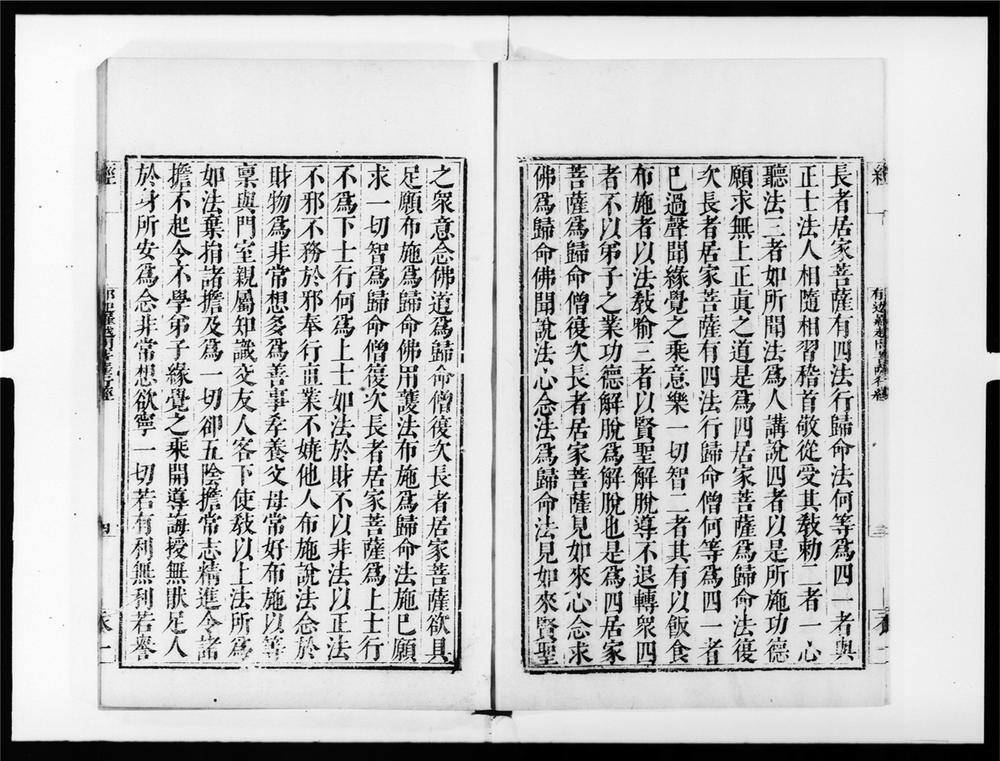 長者居家菩薩有四法行歸命法何等爲四一者與
正士法人相隨相習稽首敬從受其敎勅二者一心
聽法三者如所聞法爲人講說四者以是所施功德
願求無上正眞之道是爲四居家菩薩爲歸命法復
次長者居家菩薩有四法行歸命僧何等爲四一者
已過聲聞緣覺之乘意樂一切智二者其有以飯食
布施者以法敎喻三者以賢聖解脫導不退轉衆四
者不以弟子之業功德解脫爲解脫也是爲四居家
菩薩爲歸命僧復次長者居家菩薩見如來心念求
佛爲歸命佛聞說法心念法爲歸命法見如來賢聖
之衆意念佛道爲歸命僧復次長者居家菩薩欲具
足願布施爲歸命佛用護法布施爲歸命法施已願
求一切智爲歸命僧復次長者居家菩薩爲上士行
不爲下士行何爲上士如法於財不以非法以正法
不邪不務於邪奉行直業不嬈他人布施說法念於
財物爲非常想多爲善事孝養父母常好布施以等
稟與門室親屬知識交友人客下使敎以上法所爲
如法棄捐諸擔及爲一切卻五陰擔常志精進令諸
擔不起令不學弟子緣覺之乘開導誨授無猒足人
於身所安爲念非常想欲寧一切若有利無利若譽
經一
四
經一
三